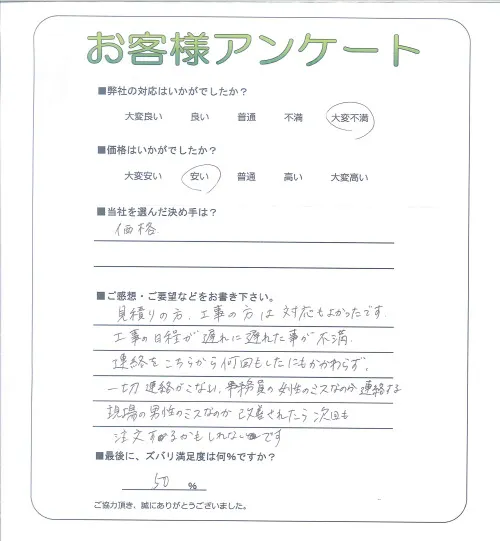 お客様アンケート
■弊社の対応はいかがでしたか？
大変良い　良い　普通　不満　大変不満
■価格はいかがでしたか？
大変安い　安い　普通　高い　大変高い
■当社を選んだ決め手は？
価格
■ご感想・ご要望などをお書き下さい。
見積りの方、工事の方は対応もよかったです。
工事の日程が遅れに遅れた事が不満、
連絡をこちらから何回もしたにもかかわらず、
一切連絡がこない、事務員の女性のミスなのか連絡する
現場の男性のミスなのか 改善されたら次回も
注文するかもしれないです
■最後に、ズバリ満足度は何％ですか？
50 ％
ご協力頂き、誠にありがとうございました。